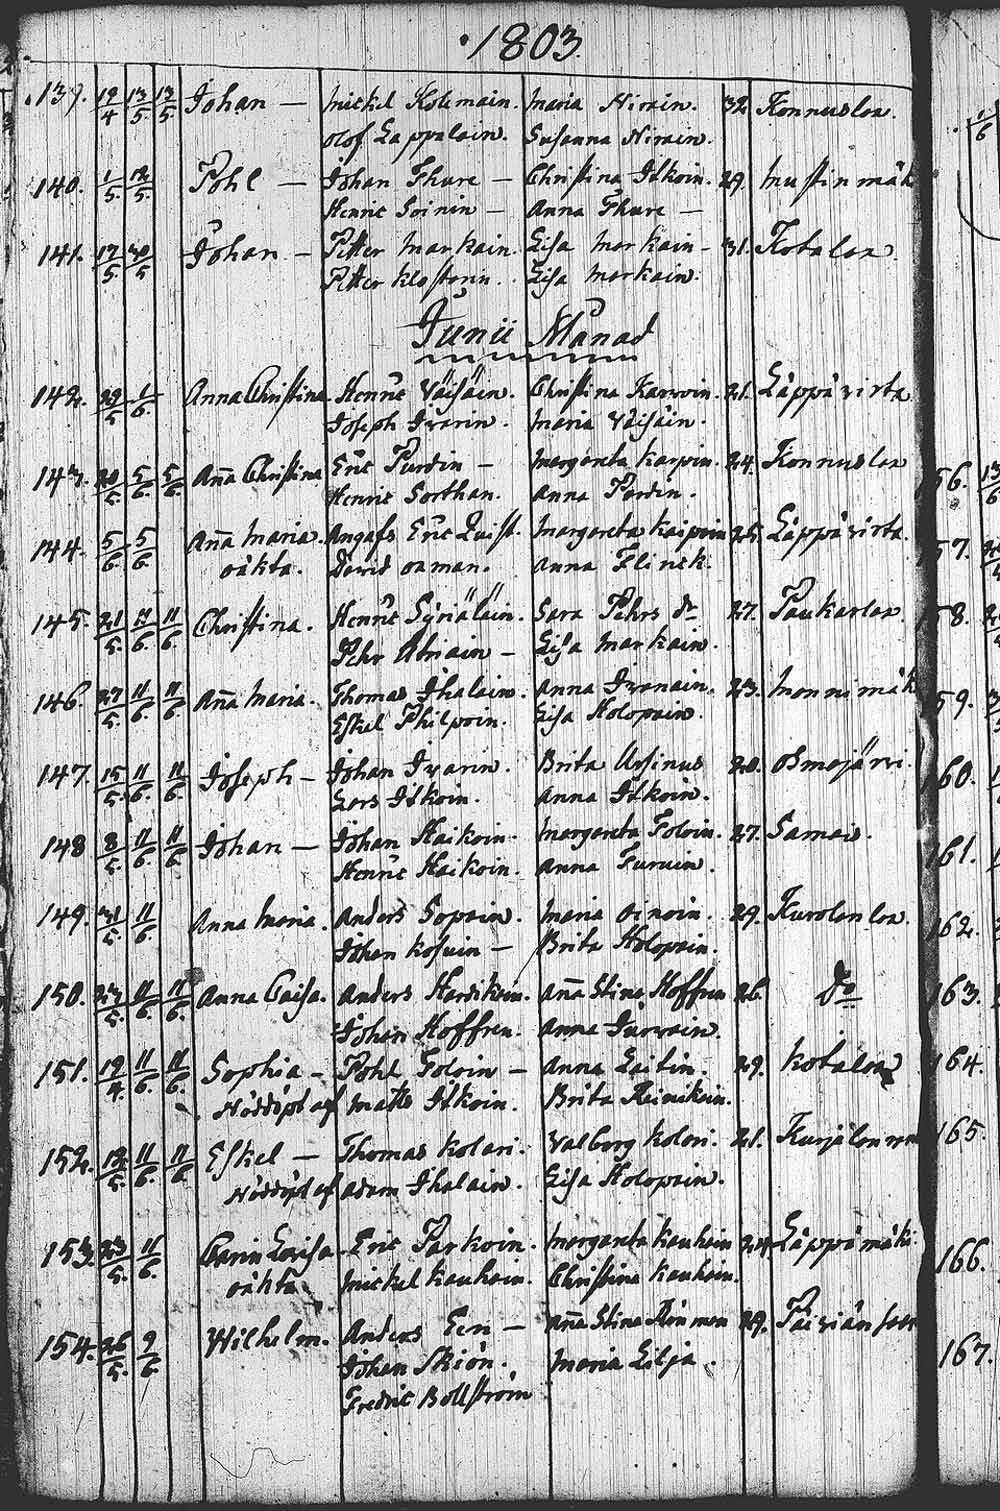 1803.
139. 19/4 13/5 13/5 Johan — Mickel Kolemain. Maria Hirvin. 32. Konnuslax
Olof Lappalain. Susanna Hirvin.
140. 1/5. 12/5. Pohl — Johan Thure — Christina Itkoin. 29. Mustinmäk
Henric Soinin — Anna Thure —
141. 17/5. 30/5 Johan — Petter Markain. Lisa Markain — 31. Kotalax
Petter Klosterin. Lisa Markain.
Junii Månad
142. 29/5 1/6. Anna Christina. Henric Väisäin. Christina Karvoin. 21. Läppävirta
Joseph Ivarin. Maria Väisäin.
143. 30/5. 5/6. 5/6. Anna Christina Eric Purdin — Margareta Karpoin. 24. Konnuslax
Henric Sorthan. Anna Pardin.
144. 5/6. 5/6. Anna Maria. Eric Quist. Margareta Kaipoin 25. Läppävirta.
oäkta. David Oxman. Anna Flinck.
145. 21/5. 11/6. 11/6. Christina. Henric Syriäläin. Sara Pehrs dr 27. Paukarlax
Pehr Utriain — Lisa Markain.
146. 27/5 11/6. 11/6. Anna Maria. Thomas Ihalain. Anna Ivanain. 23. Monnimäk
Eskel Philpoin. Lisa Holopain.
147. 15/5. 11/6. 11/6. Joseph — Johan Ivarin. Brita Ursinus 20. Osmajärvi.
Lars Itkoin. Anna Itkoin.
148 8/5. 11/6. 11/6. Johan — Johan Haikoin. Margareta Toloin. 27. Samais.
Henric Haikoin. Anna Turuin.
149. 31/5. 11/6. Anna Maria. Anders Sopain. Maria Oinoin. 29. Kurolanlax.
Johan Kosuin — Brita Holopain.
150. 23/5. 11/6. 11/6. Anna Caisa. Anders Hardikain. Anna Stina Hoffren 26. Do
Johan Hoffren. Anna Jurvain.
151. 19/4. 11/6. 11/6. Sophia — Pohl Toloin — Anna Laitin. 29. Kotalax
Nöddöpt af Matts Itkoin. Brita Reinikain.
152. 12/5. 11/6. 11/6 Eskel — Thomas Kolari. Valborg Kolari. 21. Kurjalanran
Nöddöpt af Adam Ihalain. Lisa Holopain.
153. 23/5. 11/6. Carin Lovisa. Eric Parkoin. Margareta Kauhain 24. Läppämäki
oäkta Mickel Kauhain. Christina Kauhain.
154. 26/5. 9/6. Wilhelm. Anders Een — Anna Stina Rönman 29. Päiviän
Johan Skiön. Maria Lilja.
Fredric Bollström
1/6
56. 13/6
57.
58.
59.
60.
161.
162.
163.
164.
165.
166.
167.